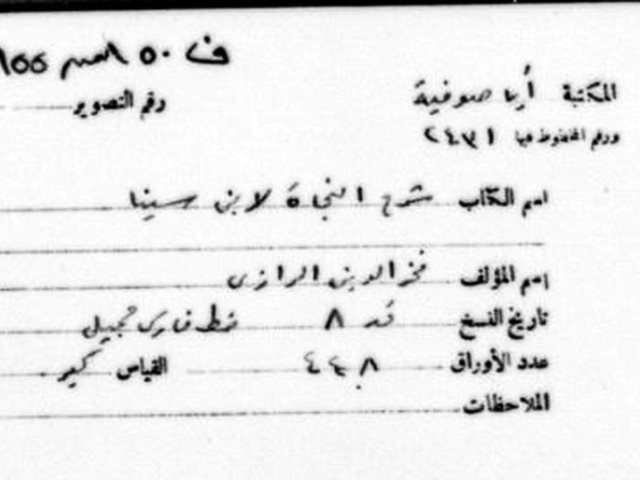 ف ٥٠
المكتبة أيا صوفية
رقم التصوير
ورقم المخطوط فيها ٢٤٣١
اسم الكتاب شرح النجاة لابن سينا
اسم المؤلف فخر الدين الرازى
تاريخ النسخ ق ٨ خط فارسى جميل
عدد الأوراق القياس كبير
الملاحظات